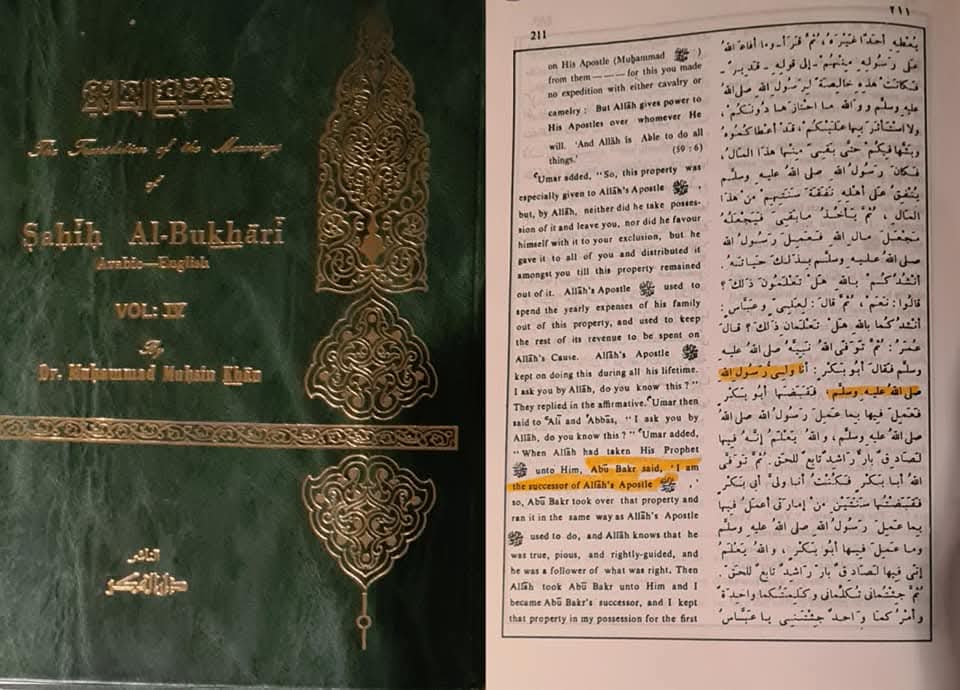 The Translation of the Meanings
of
Ṣaḥīḥ Al-Bukhārī
Arabic—English
VOL: IV
By
Dr. Muḥammad Muḥsin Khān
الناشر
دار الفكر
211
on His Apostle (Muḥammad ﷺ )
from them — — — for this you made
no expedition with either cavalry or
camelry : But Allāh gives power to
His Apostles over whomever He
will. 'And Allāh is Able to do all
things.' (59 : 6)
ʿUmar added, "So, this property was
especially given to Allāh's Apostle ﷺ ,
but, by Allāh, neither did he take posses-
sion of it and leave you, nor did he favour
himself with it to your exclusion, but he
gave it to all of you and distributed it
amongst you till this property remained
out of it. Allāh's Apostle ﷺ used to
spend the yearly expenses of his family
out of this property, and used to keep
the rest of its revenue to be spent on
Allāh's Cause. Allāh's Apostle ﷺ
kept on doing this during all his lifetime.
I ask you by Allāh, do you know this ?"
They replied in the affirmative. ʿUmar then
said to ʿAlī and ʿAbbās, "I ask you by
Allāh, do you know this ?" ʿUmar added,
"When Allāh had taken His Prophet
ﷺ unto Him, Abū Bakr said, 'I am
the successor of Allāh's Apostle ﷺ ,'
so, Abū Bakr took over that property and
ran it in the same way as Allāh's Apostle
ﷺ used to do, and Allāh knows that he
was true, pious, and rightly-guided, and
he was a follower of what was right. Then
Allāh took Abū Bakr unto Him and I
became Abū Bakr's successor, and I kept
that property in my possession for the first
٢١١
يُعْطِهِ أَحَدًا غَيْرَهُ، ثُمَّ قَرَأَ- وما أفاءَ اللهُ
عَلَى رَسُولِهِ مِنْهُمْ - إلى قولِهِ - قديرٌ -
فَكَانَتْ هَذِهِ خالِصَةً لِرَسُولِ اللهِ صلى اللهُ
عليهِ وسلَّم وَوَاللهِ ما احْتَازَهَا دُونَكُمْ،
ولا اسْتَأْثَرَ بِها عَلَيْكُمْ، قَدْ أَعْطاكُمُوهُ
وبَثَّهَا فيكُمْ حَتَّى بَقِيَ مِنْها هَذَا المالُ،
فكانَ رَسُولُ اللهِ صلى اللهُ عليهِ وسلَّم
يُنْفِقُ عَلَى أَهْلِهِ نَفَقَةَ سَنَتِهِمْ مِنْ هَذا
المالِ، ثُمَّ يَأْخُذُ ما بَقِيَ فَيَجْعَلُهُ
مَجْعَلَ مالِ اللهِ فَعَمِلَ رَسُولُ اللهِ
صلى اللهُ عليهِ وسلَّم بِذلِكَ حَياتَهُ.
أَنْشُدُكُمْ بِاللهِ هَلْ تَعْلَمُونَ ذلِكَ؟
قالُوا: نَعَمْ، ثُمَّ قالَ: لِعَلِيٍّ وعَبَّاسٍ:
أَنْشُدُكُما بِاللهِ هَلْ تَعْلَمانِ ذلِكَ؟ قالَ
عُمَرُ: ثُمَّ تَوَفَّى اللهُ نَبِيَّهُ صلى اللهُ عليهِ
وسلَّم فقالَ أَبُو بَكْرٍ: أنا وَلِيُّ رَسُولِ اللهِ
صلى اللهُ عليهِ وسلَّم، فَقَبَضَها أبُو بَكْرٍ
فَعَمِلَ فيها بِما عَمِلَ رَسُولُ اللهِ صلى اللهُ
عليهِ وسلَّم، واللهُ يَعْلَمُ إنَّهُ فيها
لَصادِقٌ بارٌّ راشِدٌ تابِعٌ لِلحَقِّ. ثُمَّ تَوَفَّى
اللهُ أبا بَكْرٍ فَكُنْتُ أنا وَلِيَّ أبي بَكْرٍ
فَقَبَضْتُها سَنَتَيْنِ مِنْ إمارَتِي أعْمَلُ فيها
بِما عَمِلَ رَسُولُ اللهِ صلى اللهُ عليهِ وسلَّم
وما عَمِلَ فيها أبُو بَكْرٍ، واللهُ يَعْلَمُ
إنِّي فيها لَصادِقٌ بارٌّ راشِدٌ تابِعٌ لِلحَقِّ.
ثُمَّ جِئْتُماني تُكَلِّماني وكَلِمَتُكُما واحِدَةٌ
وأمْرُكُما واحِدٌ جِئْتَنِي يا عَبَّاسُ